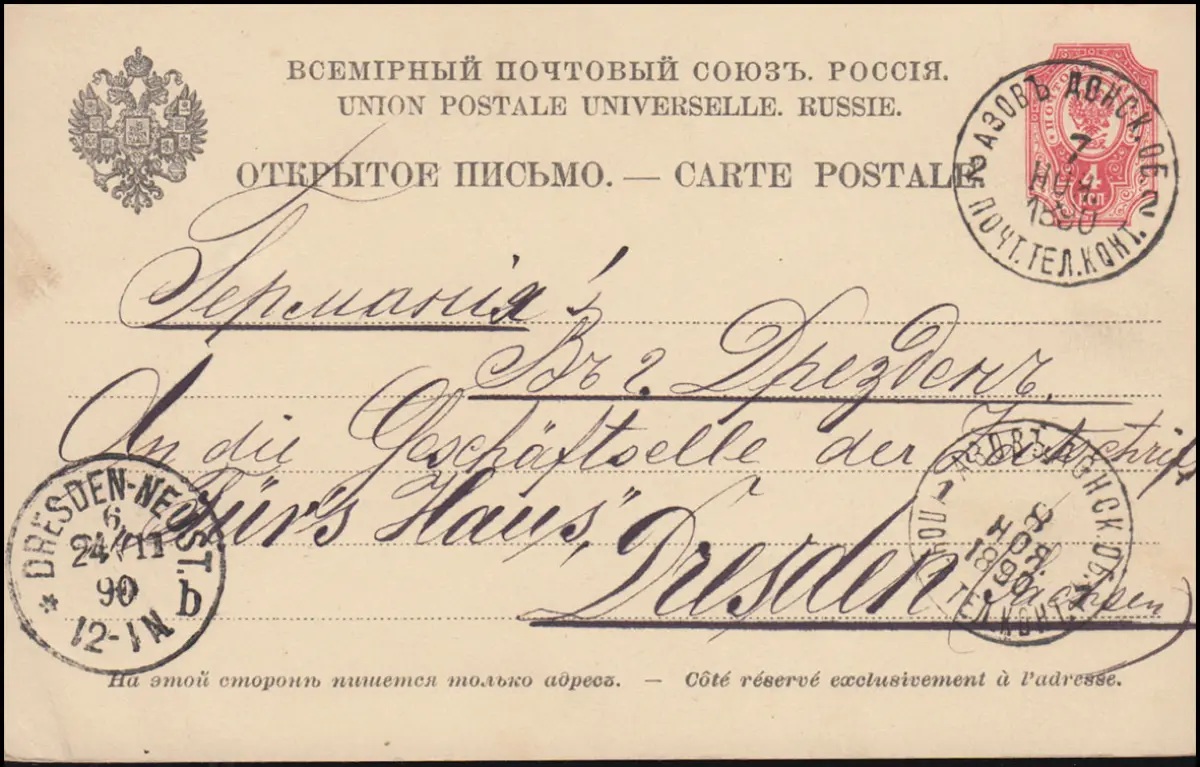 ВСЕМІРНЫЙ ПОЧТОВЫЙ СОЮЗЪ. РОССІЯ.
UNION POSTALE UNIVERSELLE. RUSSIE.
ОТКРЫТОЕ ПИСЬМО. — CARTE POSTALE.
4
КОП
АЗОВЪ ДОНСК. ОБ.
2 2
7
НОЯ
1890
ПОЧТ. ТЕЛ. КОНТ.
Германія!
Въ г. Дрезденъ.
An die Geschäftselle der
"Für's Haus"
Dresden
Sachsen)
DRESDEN-NEUST.
6
24/11
90
12-1N
b
*
АЗОВЪ ДОНСК. ОБ.
1
8
НОЯ.
1890
ПОЧ. ТЕЛ. КОНТ.
На этой сторонѣ пишется только адресъ. — Côté réservé exclusivement à l'adresse.